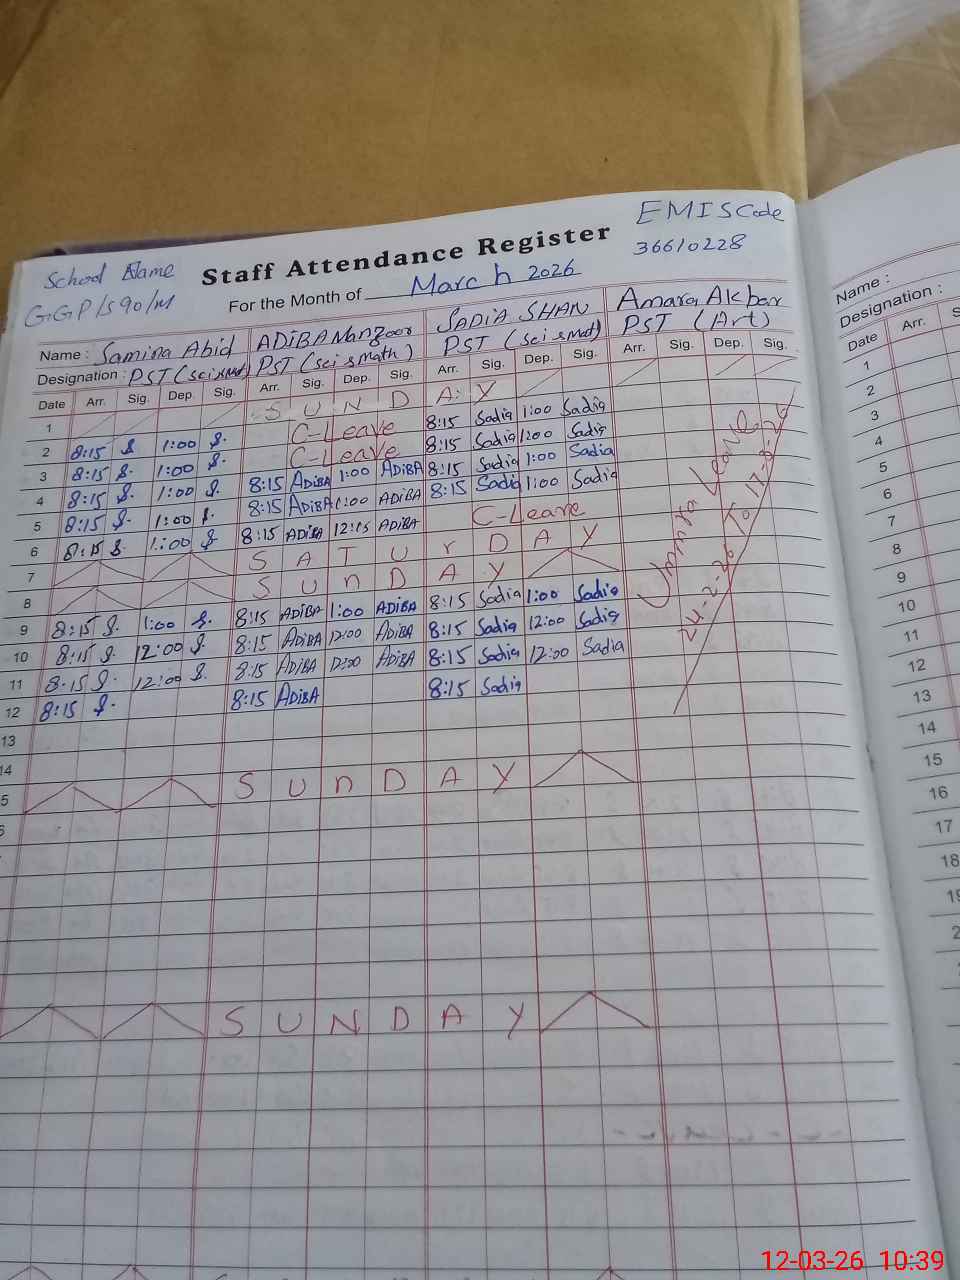 EMIS Code
School Name
Staff Attendance Register
36610228
GGP/S 90/M
For the Month of March 2026
Name : Samina Abid ADiBA Manzoor SADiA SHAN Amara Akbar
Designation : PST (sci & Mat) PST (sci & math) PST (sci & mat) PST (Art)
Date Arr. Sig. Dep. Sig. Arr. Sig. Dep. Sig. Arr. Sig. Dep. Sig. Arr. Sig. Dep. Sig.
1 S U N D A Y
2 8:15 S. 1:00 S. C-Leave 8:15 Sadia 1:00 Sadia
3 8:15 S. 1:00 S. C-Leave 8:15 Sadia 1:00 Sadia
4 8:15 S. 1:00 S. 8:15 ADiBA 1:00 ADiBA 8:15 Sadia 1:00 Sadia
5 8:15 S. 1:00 S. 8:15 ADiBA 1:00 ADiBA 8:15 Sadia 1:00 Sadia
6 8:15 S. 1:00 S. 8:15 ADiBA 12:15 ADiBA C-Leave
7 S A T U r D A Y
8 S U n D A Y
9 8:15 S. 1:00 S. 8:15 ADiBA 1:00 ADiBA 8:15 Sadia 1:00 Sadia
10 8:15 S. 12:00 S. 8:15 ADiBA 12:00 ADiBA 8:15 Sadia 12:00 Sadia
11 8:15 S. 12:00 S. 8:15 ADiBA 12:00 ADiBA 8:15 Sadia 12:00 Sadia
12 8:15 S. 8:15 ADiBA 8:15 Sadia
Leave
24-2-26 To 17-3-26
13
14
5 S U n D A Y
S U N D A Y
Name :
Designation :
Date Arr. S
1
2
3
4
5
6
7
8
9
10
11
12
13
14
15
16
17
18
19
2
12-03-26 10:39